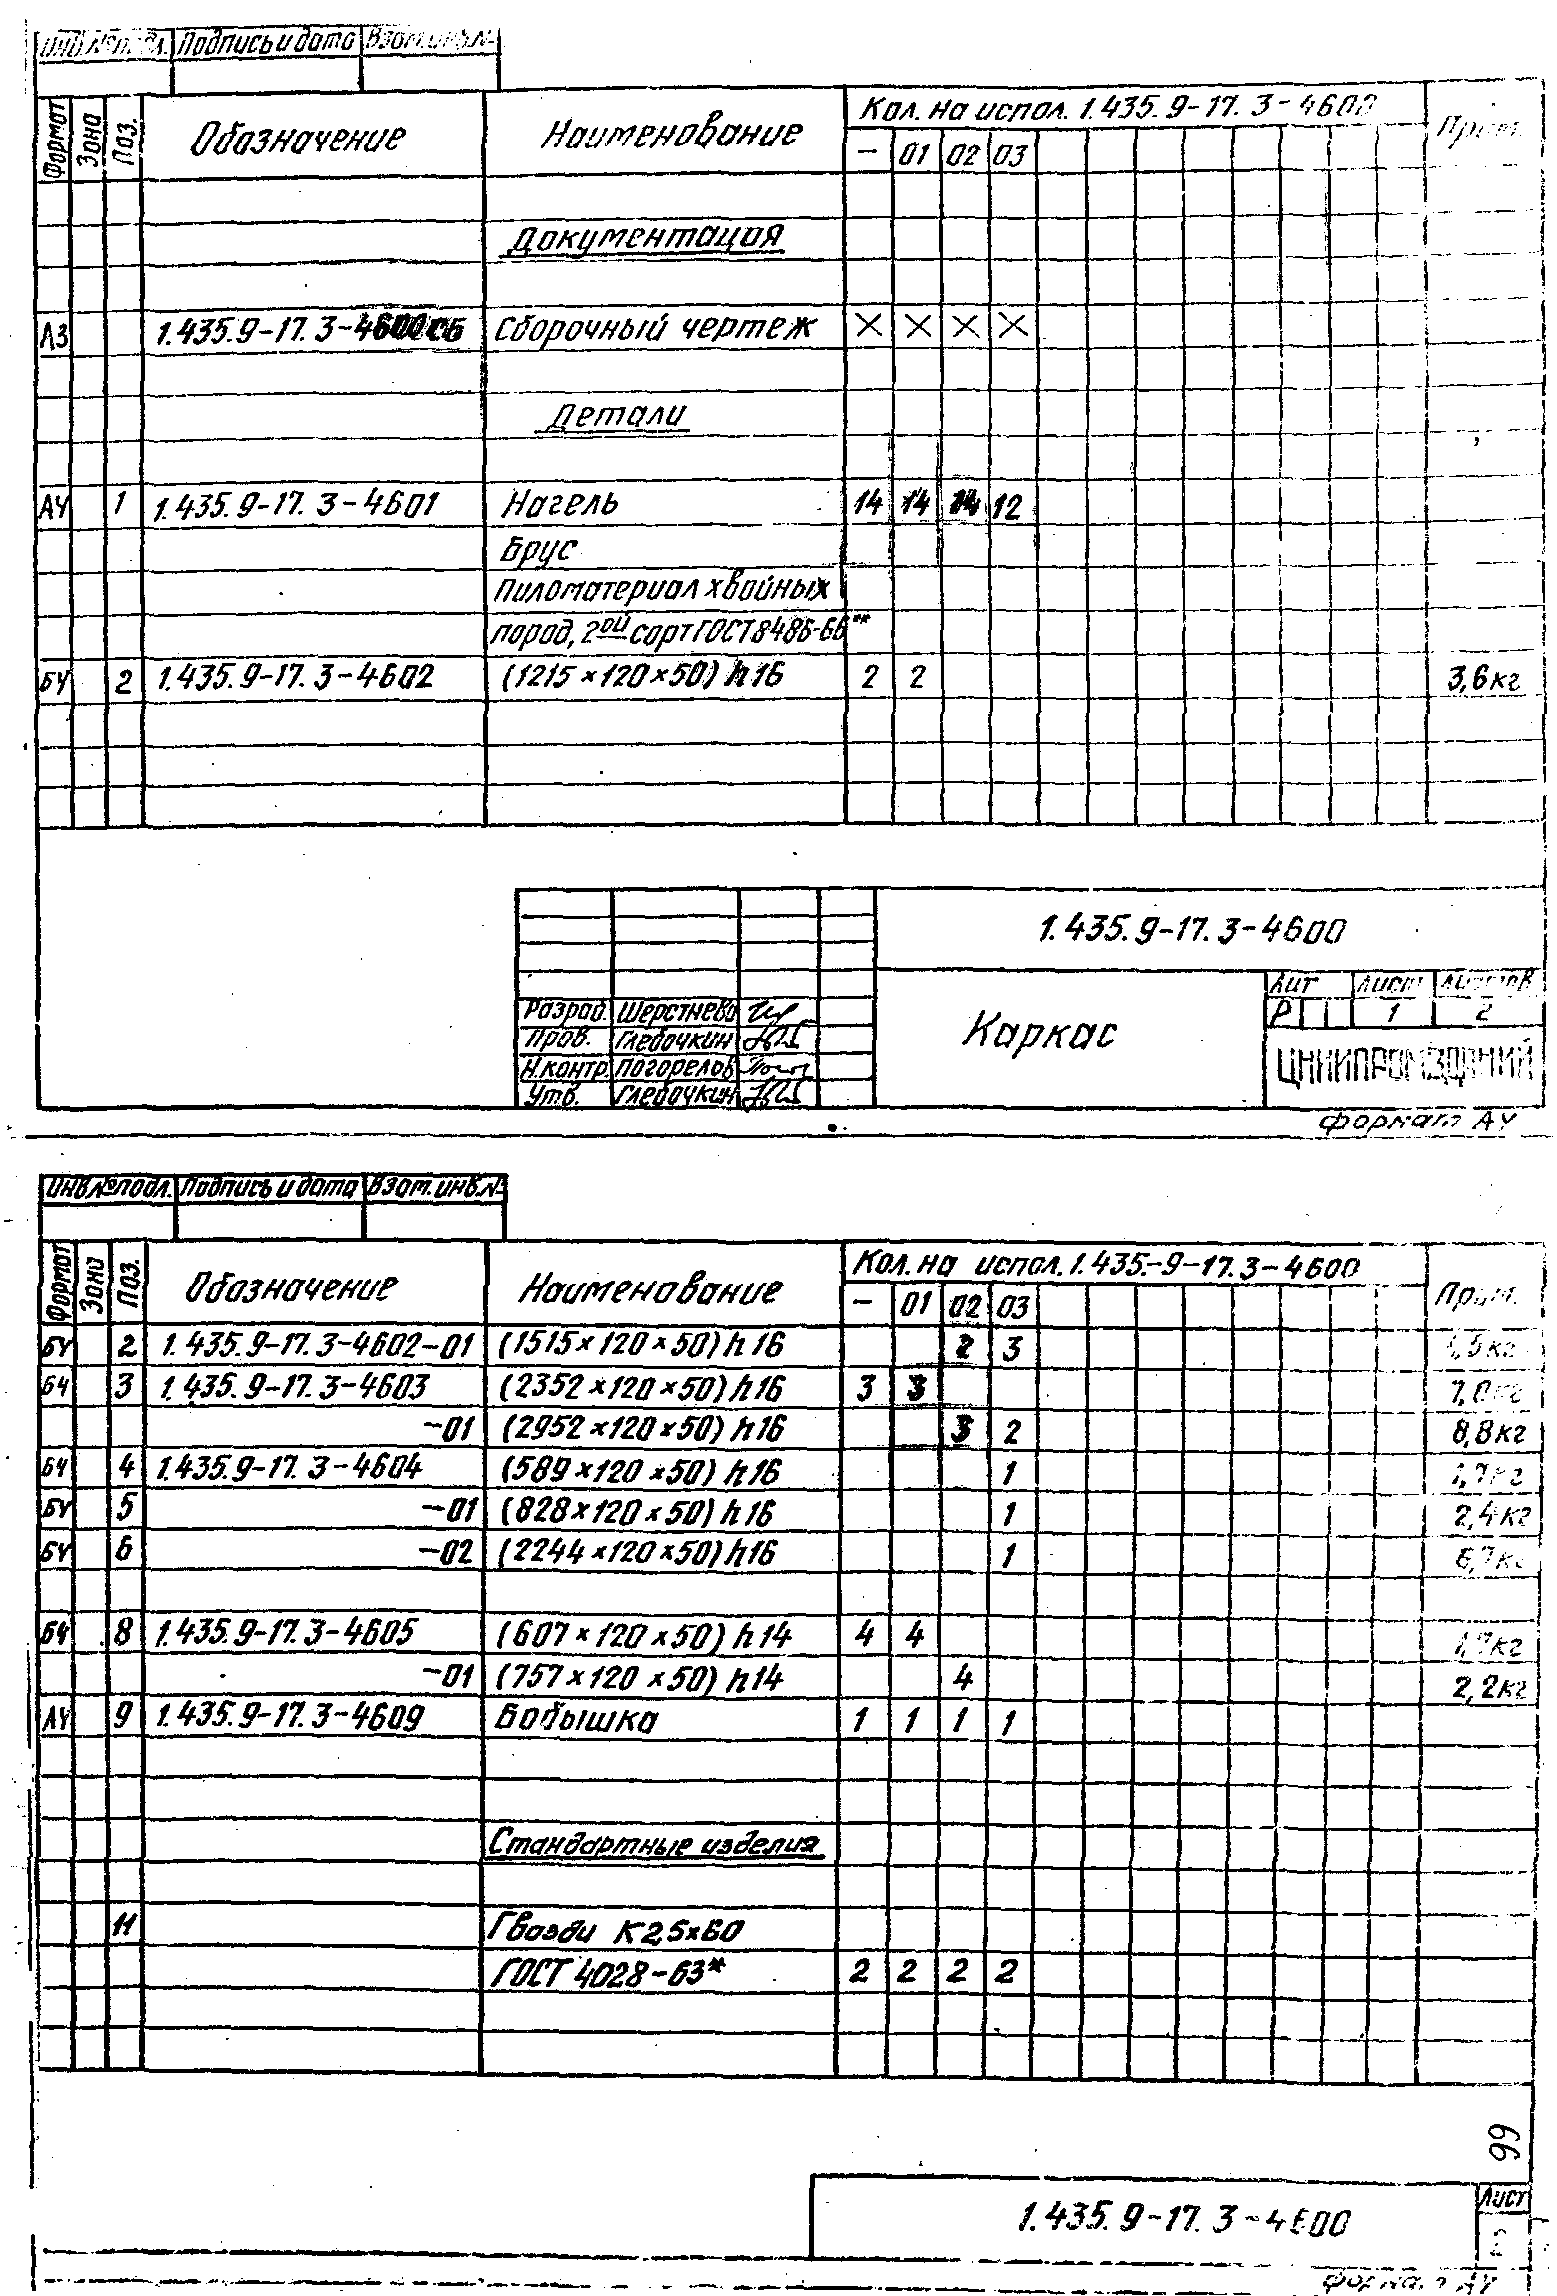 Инв.№подл. Подпись и дата Взам.инв.№
Формат Зона Поз. Обозначение Наименование Кол. на испол. 1.435.9-17.3-4600 Прим.
— 01 02 03
Документация
А3 1.435.9-17.3-4600СБ Сборочный чертеж × × × ×
Детали
А4 1 1.435.9-17.3-4601 Нагель 14 14 14 12
Брус
пиломатериал хвойных
пород, 2ой сорт ГОСТ 8486-66**
БЧ 2 1.435.9-17.3-4602 (1215×120×50) h16 2 2 3,6кг
1.435.9-17.3-4600
Разраб. Шерстнева
Пров. Глебочкин
Н.контр. Погорелов
Утв. Глебочкин
Каркас
Лит Лист Листов
Р 1 2
ЦНИИПРОМЗДАНИЙ
Формат А4
Инв.№подл. Подпись и дата Взам.инв.№
Формат Зона Поз. Обозначение Наименование Кол. на испол. 1.435.-9-17.3-4600 Прим.
— 01 02 03
БЧ 2 1.435.9-17.3-4602-01 (1515×120×50) h16 2 3
БЧ 3 1.435.9-17.3-4603 (2352×120×50) h16 3 3 7,0кг
-01 (2952×120×50) h16 3 2 8,8кг
БЧ 4 1.435.9-17.3-4604 (589×120×50) h16 1 1,7кг
БЧ 5 -01 (828×120×50) h16 1 2,4кг
БЧ 6 -02 (2244×120×50) h16 1 6,7кг
БЧ 8 1.435.9-17.3-4605 (607×120×50) h14 4 4
-01 (757×120×50) h14 4 2,2кг
А4 9 1.435.9-17.3-4609 Бобышка 1 1 1 1
Стандартные изделия
11 Гвозди К2,5×60
ГОСТ 4028-63* 2 2 2 2
99
1.435.9-17.3-4600
Лист
2
Формат А4